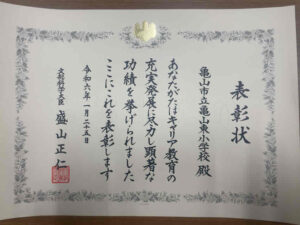 表彰状
亀山市立亀山東小学校 殿
あなたがたはキャリア教育の
充実発展に尽力し顕著な
功績を挙げられました
ここにこれを表彰します
令和六年一月二十五日
文部科学大臣 盛山正仁